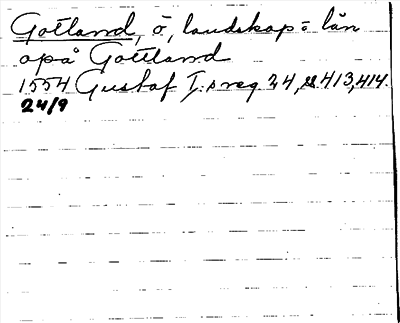 Gotland, ö, landskap = län
opå Gottland
1554 Gustaf I:s reg. 24, s 413, 414.
24/9